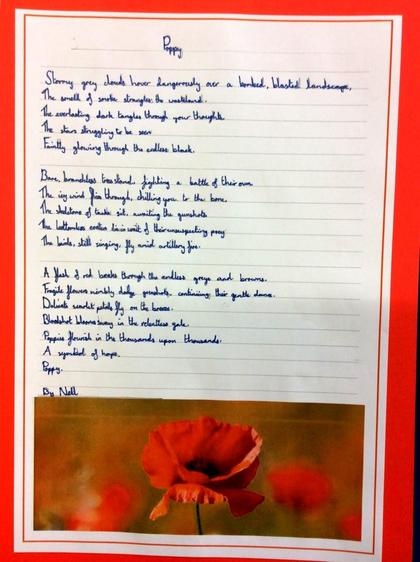 Poppy
Stormy grey clouds hover dangerously over a bombed, blasted landscape,
The smell of smoke strangles the wasteland.
The everlasting dark tangles through your thoughts.
The stars struggling to be seen
Faintly glowing through the endless black.
Bare, branchless trees stand, fighting a battle of their own
The icy wind flies through, chilling you to the bone.
The skeletons of tanks sit, awaiting the gunshots.
The bottomless craters lie in wait of their unsuspecting prey
The birds, still singing, fly amid artillery fire.
A flash of red breaks through the endless greys and browns.
Fragile flowers nimbly dodge gunshots, continuing their gentle dance.
Delicate scarlet petals fly on the breeze.
Bloodshot blooms sway in the relentless gale.
Poppies flourish in the thousands upon thousands.
A symbol of hope.
Poppy.
By Nell